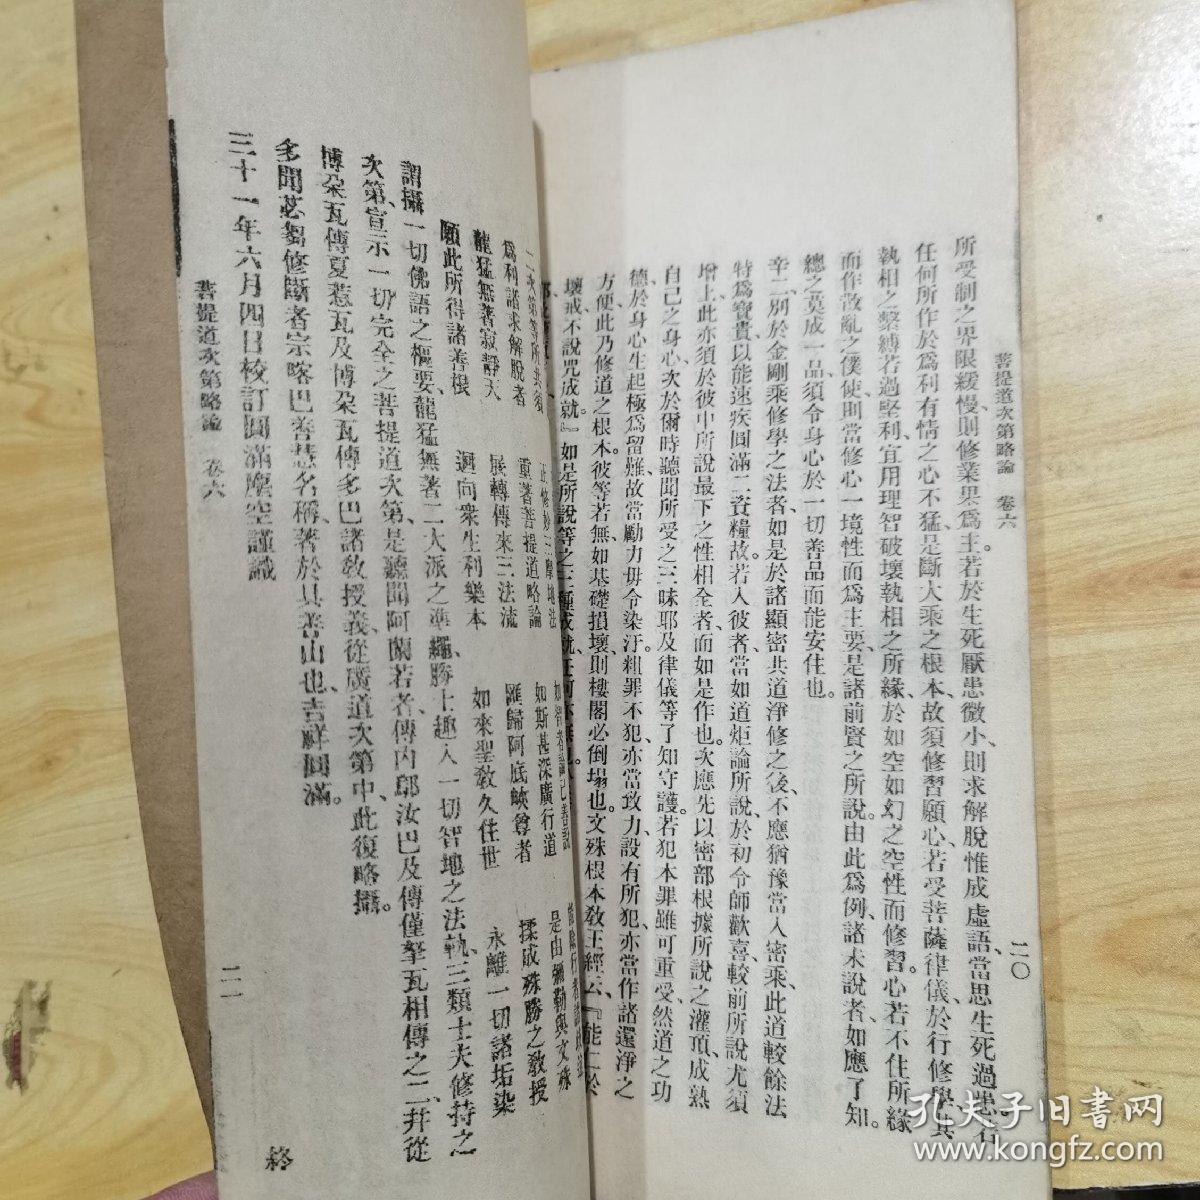 菩提道次第略論 卷六 二〇
所受制之界限緩慢、則修業果爲主。若於生死厭患微小、則求解脫惟成虛語、當思生死過患。若
任何所作於爲利有情之心不猛、是斷大乘之根本、故須修習願心。若受菩薩律儀、於行修學、其
執相之繫縛若過堅利、宜用理智破壞執相之所緣、於如空如幻之空性而修習。心若不住所緣
而作散亂之僕使、則當修心一境性而爲主要、是諸前賢之所說。由此爲例、諸未說者如應了知。
總之莫成一品、須令身心於一切善品而能安住也。
辛二、別於金剛乘修學之法者、如是於諸顯密共道淨修之後、不應猶豫當入密乘、此道較餘法
特爲寶貴、以能速疾圓滿二資糧故。若入彼者、當如道炬論所說、於初令師歡喜、較前所說尤須
增上、此亦須於彼中所說最下之性相全者而如是作也。次應先以密部根據所說之灌頂、成熟
自己之身心、次於爾時聽聞所受之三昧耶及律儀等、了知守護。若犯本罪、雖可重受、然道之功
德於身心生起極爲留難、故當勵力毋令染汙。粗罪不犯、亦當致力、設有所犯、亦當作諸還淨之
方便、此乃修道之根本。彼等若無、如基礎損壞、則樓閣必倒塌也。文殊根本教王經云『能仁於
壞戒、不說咒成就。』如是所說等之三種成就、
重著菩提道略論 如斯甚深廣行道 是由彌勒與文殊
爲利諸求解脫者 展轉傳來三法流 匯歸阿底峽尊者 揉成殊勝之教授
龍猛無著寂靜天 迴向衆生利樂本 如來聖教久住世 永離一切諸垢染
願此所得諸善根
謂攝一切佛語之樞要、龍猛無著二大派之準繩、勝士趣入一切智地之法軌、三類士夫修持之
次第、宣示一切完全之菩提道次第、是聽聞阿蘭若者、傳內鄔汝巴及傳僅拏瓦相傳之二、幷從
博朵瓦傳夏惹瓦及博朵瓦傳多巴諸教授義、從廣道次第中、此復略攝。
多聞苾芻修斷者宗喀巴善慧名稱、著於具善山也、吉祥圓滿。
三十一年六月四日校訂圓滿塵空謹識
菩提道次第略論 卷六 二一
終
孔夫子旧書网
www.kongfz.com